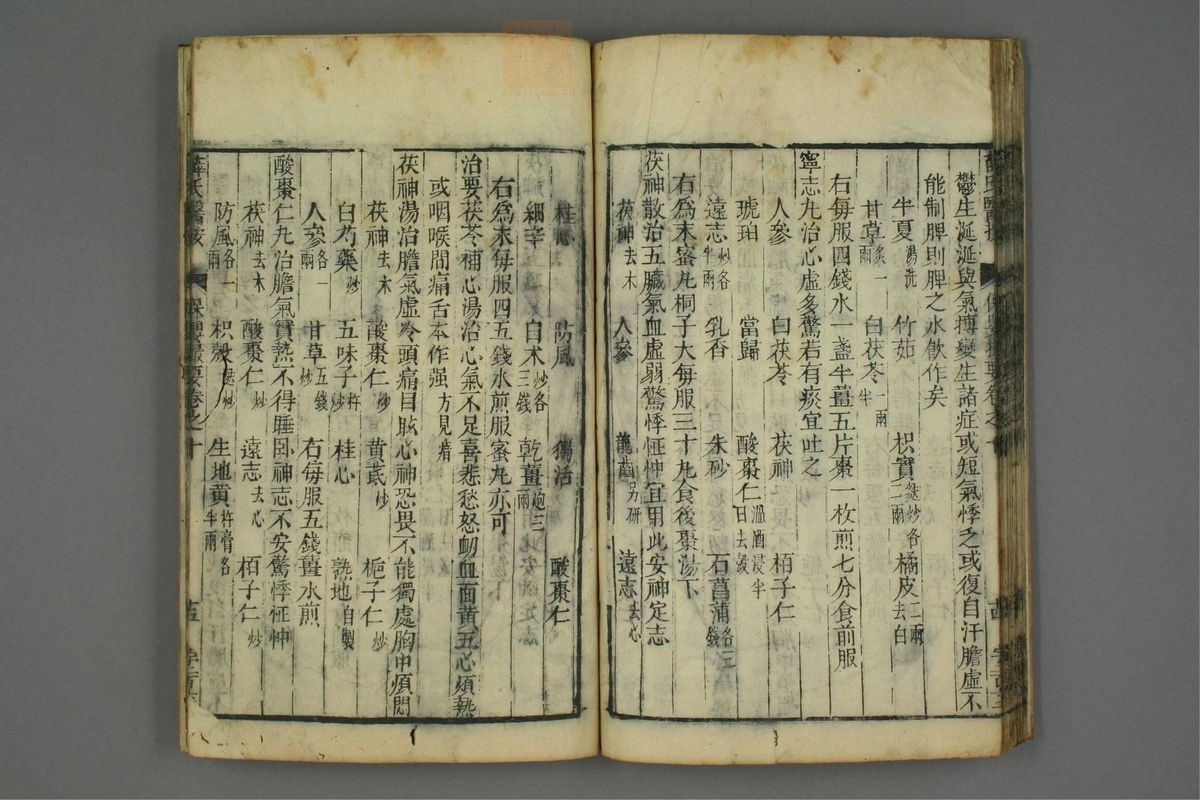 鬱生涎涎與氣搏變生諸症或短氣悸乏或復自汗膽虛不
能制脾則脾之水飲作矣
半夏湯洗 竹茹 枳實麩炒各二兩 橘皮二兩去白
甘草炙一兩 白茯苓一兩半
右每服四錢水一盞半薑五片棗一枚煎七分食前服
寧志丸治心虛多驚若有痰宜吐之
人參 白茯苓 茯神 栢子仁
琥珀 當歸 酸棗仁溫酒浸半日去殼
遠志炒各半兩 乳香 朱砂 石菖蒲各三錢
右爲末蜜丸桐子大每服三十丸食後棗湯下
茯神散治五臟氣血虛弱驚悸怔忡宜用此安神定志
茯神去木 人參 龍齒另研 遠志去心
桂心 防風 獨活 酸棗仁
細辛 白术炒各三錢 乾薑炮三兩
右爲末每服四五錢水煎服蜜丸亦可
治要茯苓補心湯治心氣不足喜悲愁怒衂血面黃五心煩熱
或咽喉間痛舌本作强方見瘖
茯神湯治膽氣虛冷頭痛目眩心神恐畏不能獨處胸中煩悶
茯神去木 酸棗仁炒 黃芪炒 栀子仁炒
白芍藥炒 五味子杵炒 桂心 熟地自製
人參各一兩 甘草五錢炒 右每服五錢薑水煎
酸棗仁丸治膽氣實熱不得睡卧神志不安驚悸怔忡
茯神去木 酸棗仁炒 遠志去心 栢子仁炒
防風各一兩 枳殼麩炒 生地黃杵膏各半兩
薛氏醫按 保嬰撮要卷之十